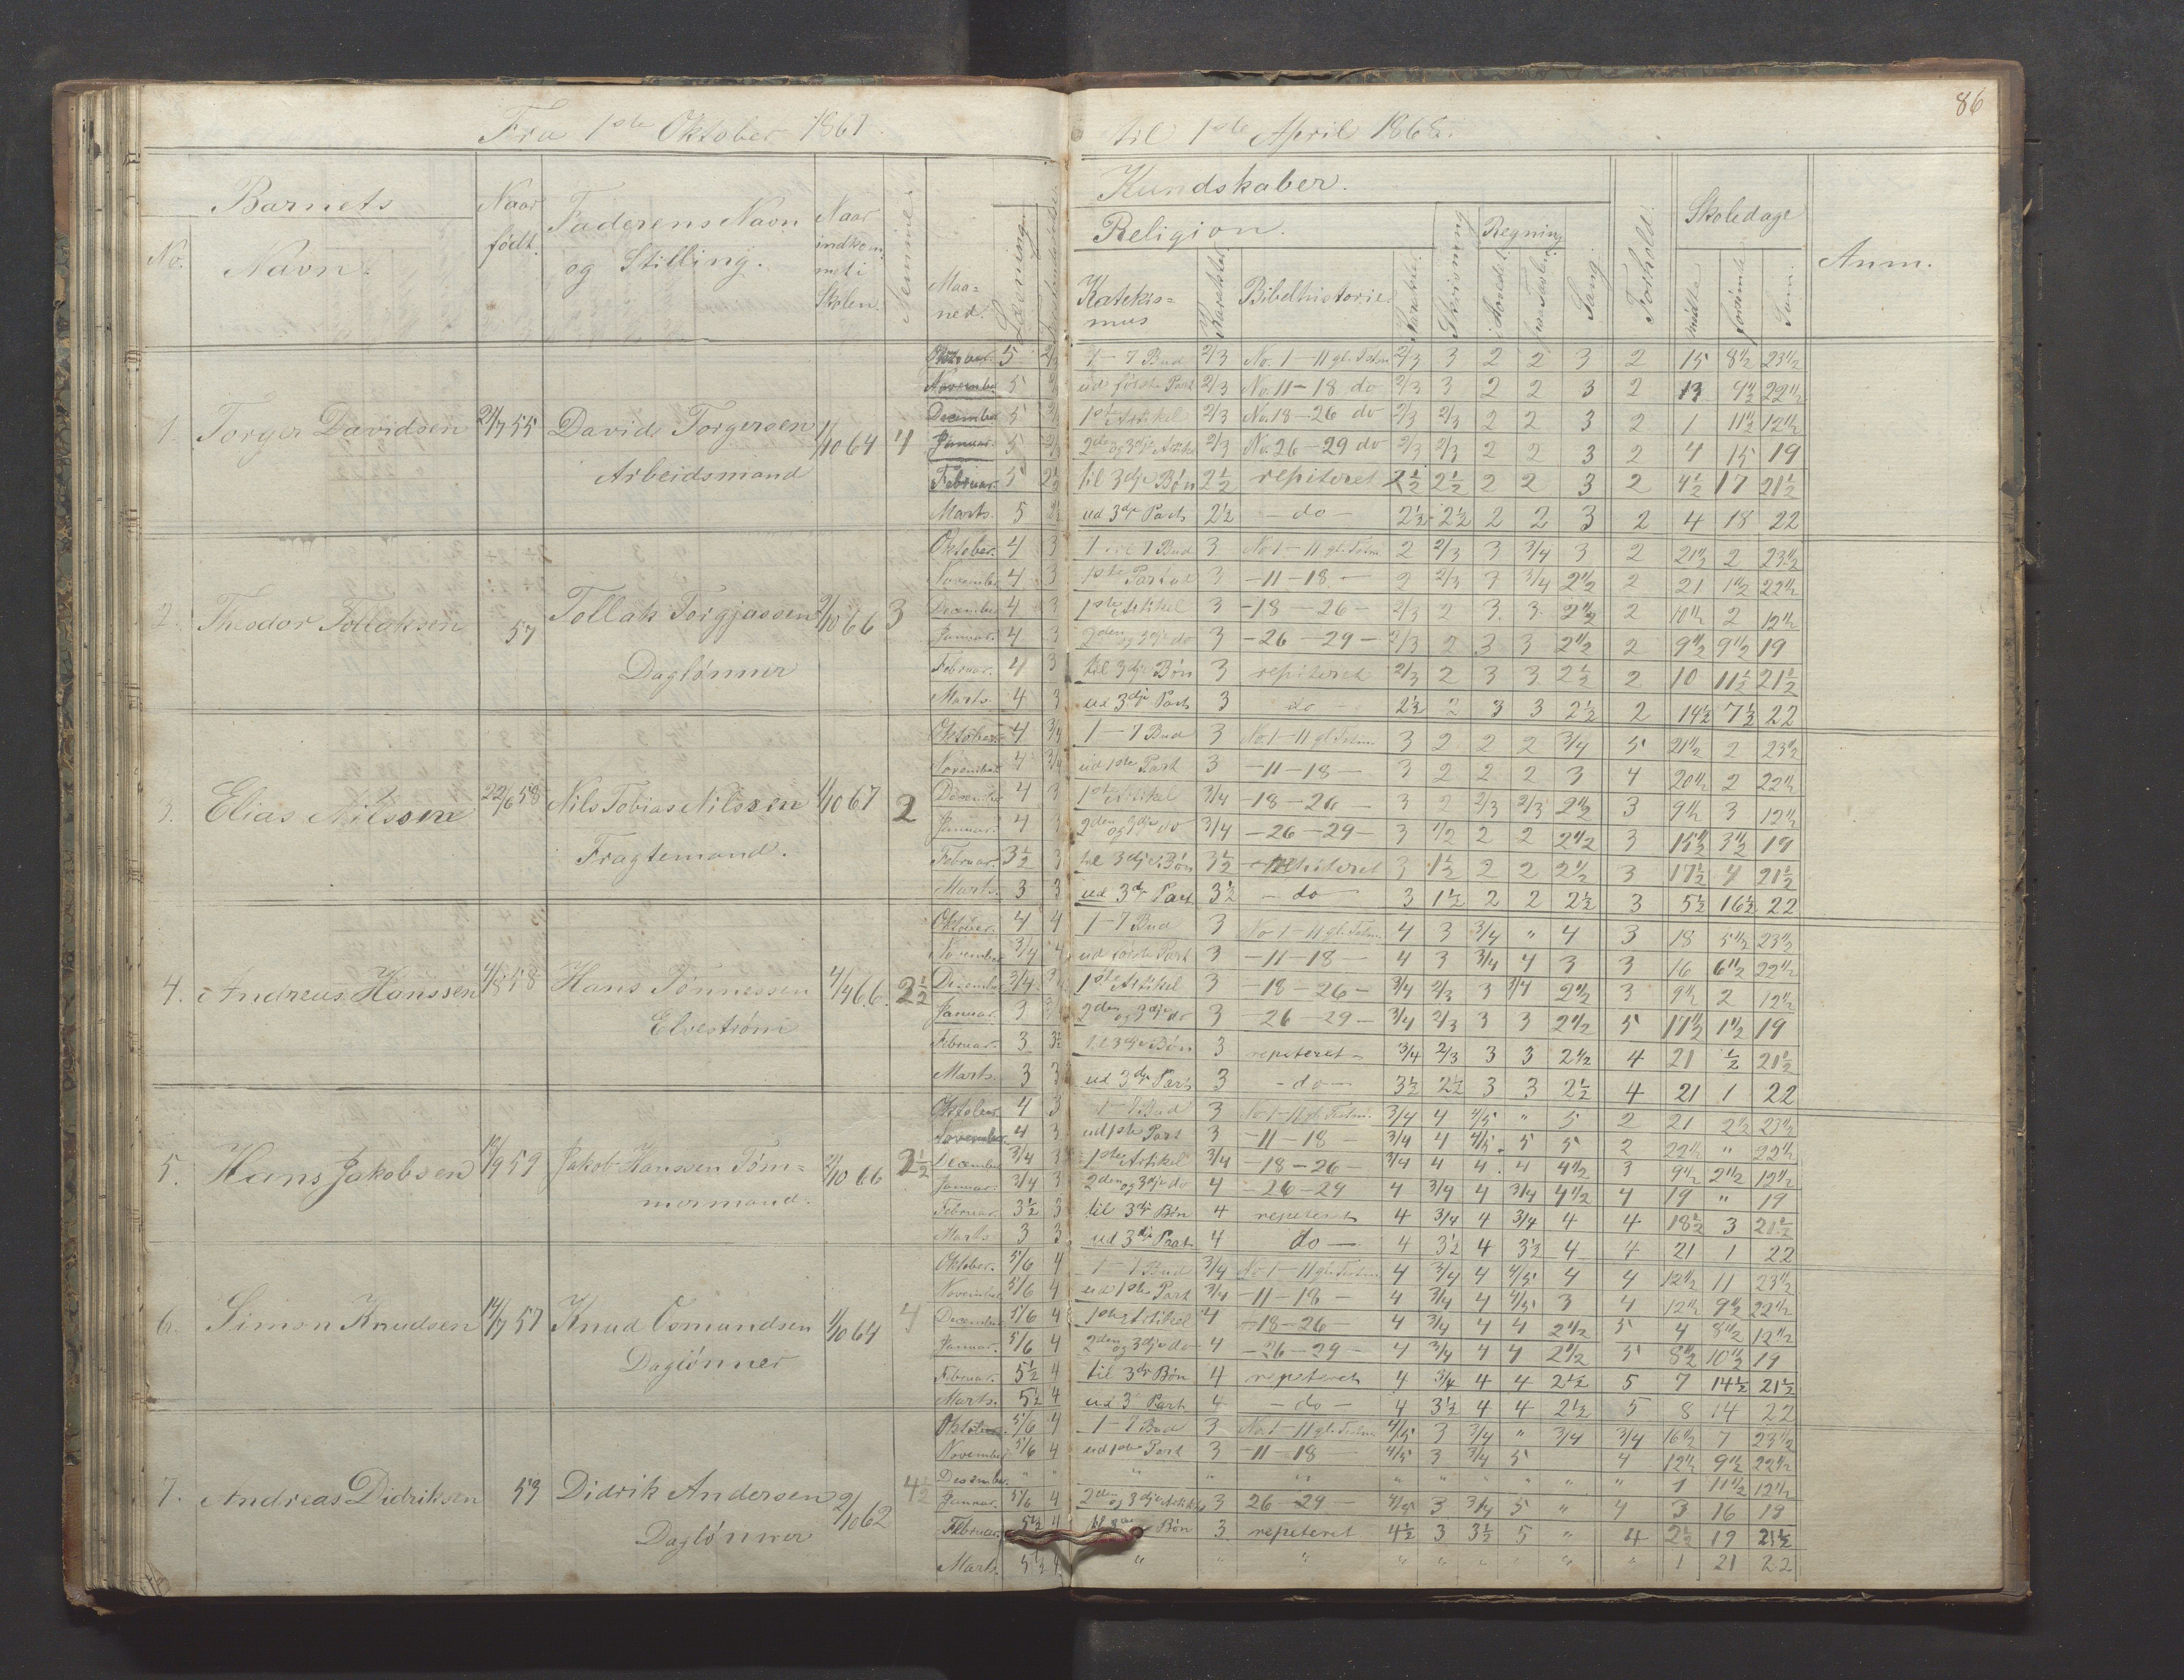 86
Fra 1ste Oktober 1867. til 1ste April 1868.
Barnets
No. Navn.
Naar født.
Faderens Navn og Stilling.
Naar indkommet i Skolen.
Nemmet
Maaned.
Læsning
Kundskaber.
Religion.
Katekismus
Karakter.
Bibelhistorie.
Karakter.
Skrivning
Regning
i Hovedet
paa Tavlen
Sang.
Forhold.
Skoledage
mødte
forsømte
Sum.
Anm.
1. Torger Davidsen 55 David Torgersen Arbeidsmand 1/10 64 4
Oktober 5 2/3 1-7 Bud 2/3 No. 1-11 gl. Testm 2/3 3 2 2 3 2 15 8 1/2 23 1/2
November 5 2/3 ud første Part 2/3 No. 11-18 do 2/3 3 2 2 3 2 13 9 1/2 22 1/2
December 5 2/3 1ste Artikel 2/3 No. 18-26 do 2/3 2/3 2 2 3 2 1 11 1/2 12 1/2
Januar. 5 2/3 2den og 3dje Artikel 2/3 No. 26-29 do 2/3 2/3 2 2 3 2 4 15 19
Februar. 5 2 1/2 til 3dje Bøn 2 1/2 repiteret 2 1/2 2 1/2 2 2 3 2 4 1/2 17 21 1/2
Marts. 5 2 1/2 ud 3dje Part 2 1/2 - do - 2 1/2 2 1/2 2 2 3 2 4 18 22
2. Theodor Tollaksen 57 Tollak Torgjussen Daglønner 2/10 66 3
Oktober. 4 3 1 til 7 Bud 3 No 1-11 gl. Testm. 2 2/3 3 3/4 3 2 21 1/2 2 23 1/2
November 4 3 1ste Part ud 3 -11-18- 2 2/3 3 3/4 2 1/2 2 21 1 1/2 22 1/2
December 4 3 1ste Artikel 3 -18-26- 2/3 2 3 3 2 1/2 2 10 1/2 2 12 1/2
Januar. 4 3 2den og 3dje do 3 -26-29- 2/3 2 3 3 2 1/2 2 9 1/2 9 1/2 19
Februar. 4 3 til 3dje Bøn 3 repiteret 2/3 2 3 3 2 1/2 2 10 11 1/2 21 1/2
Marts. 4 3 ud 3dje Part 3 do - 2 1/2 2 3 3 2 1/2 2 14 1/2 7 1/2 22
3. Elias Nilsen 22/6 58 Nils Tobias Nilssen Fragtemand. 1/10 67 2
Oktober 4 3/4 1-7 Bud 3 No. 1-11 gl. Testm. 3 2 2 2 3/4 5 21 1/2 2 23 1/2
November 4 3/4 ud 1ste Part 3 -11-18- 3 2 2 2 3 4 20 1/2 2 22 1/2
December 4 3 1ste Artikel 3/4 -18-26- 3 2 2/3 2/3 2 1/2 3 9 1/2 3 12 1/2
Januar. 4 3 2den og 3dje do 3/4 -26-29- 3 1/2 2 2 2 1/2 3 15 1/2 3 1/2 19
Februar. 3 1/2 3 til 3dje Bøn 3 1/2 repiteret 3 1 1/2 2 2 2 1/2 3 17 1/2 4 21 1/2
Marts. 3 3 ud 3dje Part 3 1/2 - do - 3 1 1/2 2 2 2 1/2 3 5 1/2 16 1/2 22
4. Andreas Hanssen 4/8 58 Hans Tønnessen Elvestrøm 4/4 66. 2 1/2
Oktober. 4 4 1-7 Bud 3 No 1-11 gl. Testm. 4 3 3/4 " 4 3 18 5 1/2 23 1/2
November 3/4 4 ud første Part 3 -11-18- 4 3 3/4 4 3 3 16 6 1/2 22 1/2
December 3/4 1ste Artikel 3 -18-26- 3/4 2/3 3 3/4 2 1/2 3 9 1/2 2 12 1/2
Januar. 3 2den og 3dje do 3 -26-29- 3/4 2/3 3 3 2 1/2 5 17 1/2 1 1/2 19
Februar. 3 3 1/2 til 3dje Bøn 3 repeteret - 3/4 2/3 3 3 2 1/2 4 21 1/2 21 1/2
Marts. 3 3 ud 3dje Part 3 - do - 3 1/2 2 1/2 3 3 2 1/2 4 21 1 22
5. Hans Jakobsen 19/9 59 Jakob Hanssen Tømmermand. 2/10 66 2 1/2
Oktober. 4 3 1-7 Bud 3 No 1-11 gl. Testm. 3/4 4 4/5 " 5 2 21 2 1/2 23 1/2
November. 4 3 ud 1ste Part 3 -11-18- 3/4 4 4/5 5 5 2 22 1/2 " 22 1/2
December 3/4 3 1ste Artikel 3/4 -18-26- 3/4 4 4 4 4 1/2 3 9 1/2 2 1/2 12 1/2
Januar. 3/4 3 2den og 3dje do 4 -26-29 4 3/4 4 3/4 4 1/2 4 19 " 19
Februar. 3 1/2 3 til 3dje Bøn 4 repeteret 4 3/4 4 3/4 4 4 18 1/2 3 21 1/2
Marts 3 3 ud 3dje Part 4 do - 4 3 1/2 4 3 1/2 4 4 21 1 22
6. Simon Knudsen 14/7 57 Knud Osmundsen Daglønner 1/10 64 4
Oktober. 5/6 4 1-7 Bud 3/4 No 1-11 gl. Testm. 4 3/4 4 4/5 4 4 12 1/2 11 23 1/2
November 5/6 4 ud 1ste Part 3/4 -11-18- 4 3/4 4 4/5 3 4 12 1/2 9 1/2 22 1/2
December 5/6 4 1ste Artikel 4 -18-26- 4 3/4 4 4 2 1/2 5 4 8 1/2 12 1/2
Januar. 5/6 4 2den og 3dje do 4 -26-29- 4 3/4 4 4 2 1/2 5 8 1/2 10 1/2 19
Februar. 5 1/2 4 til 3dje Bøn 4 repeteret 4 3/4 4 4 2 1/2 5 7 14 1/2 21 1/2
Marts. 5 1/2 4 ud 3 Part 4 - do - 4 3 1/2 4 4 2 1/2 5 8 14 22
7. Andreas Didriksen 53 Didrik Andersen Daglønner 2/10 62 4 1/2
Oktober. 5/6 4 1-7 Bud 3 No. 1-11 gl. Testm 4/5 3 3/4 " 3/4 3/4 16 1/2 7 23 1/2
November 5/6 4 ud 1ste Part 3 -11-18 4/5 3 3/4 5 4 12 1/2 9 1/2 22 1/2
December. " " " " " " " " " " " 1 11 1/2 12 1/2
Januar. 5/6 4 2den og 3dje Artikel 3 26-29- 4/5 3 3/4 5 " 4 3 16 19
Februar. 5 1/2 4 Bøn 3 repeteret 4 1/2 3 3 1/2 5 " 4 2 1/2 19 21 1/2
Marts. 5 1/2 " " " " " " " " " 1 21 22